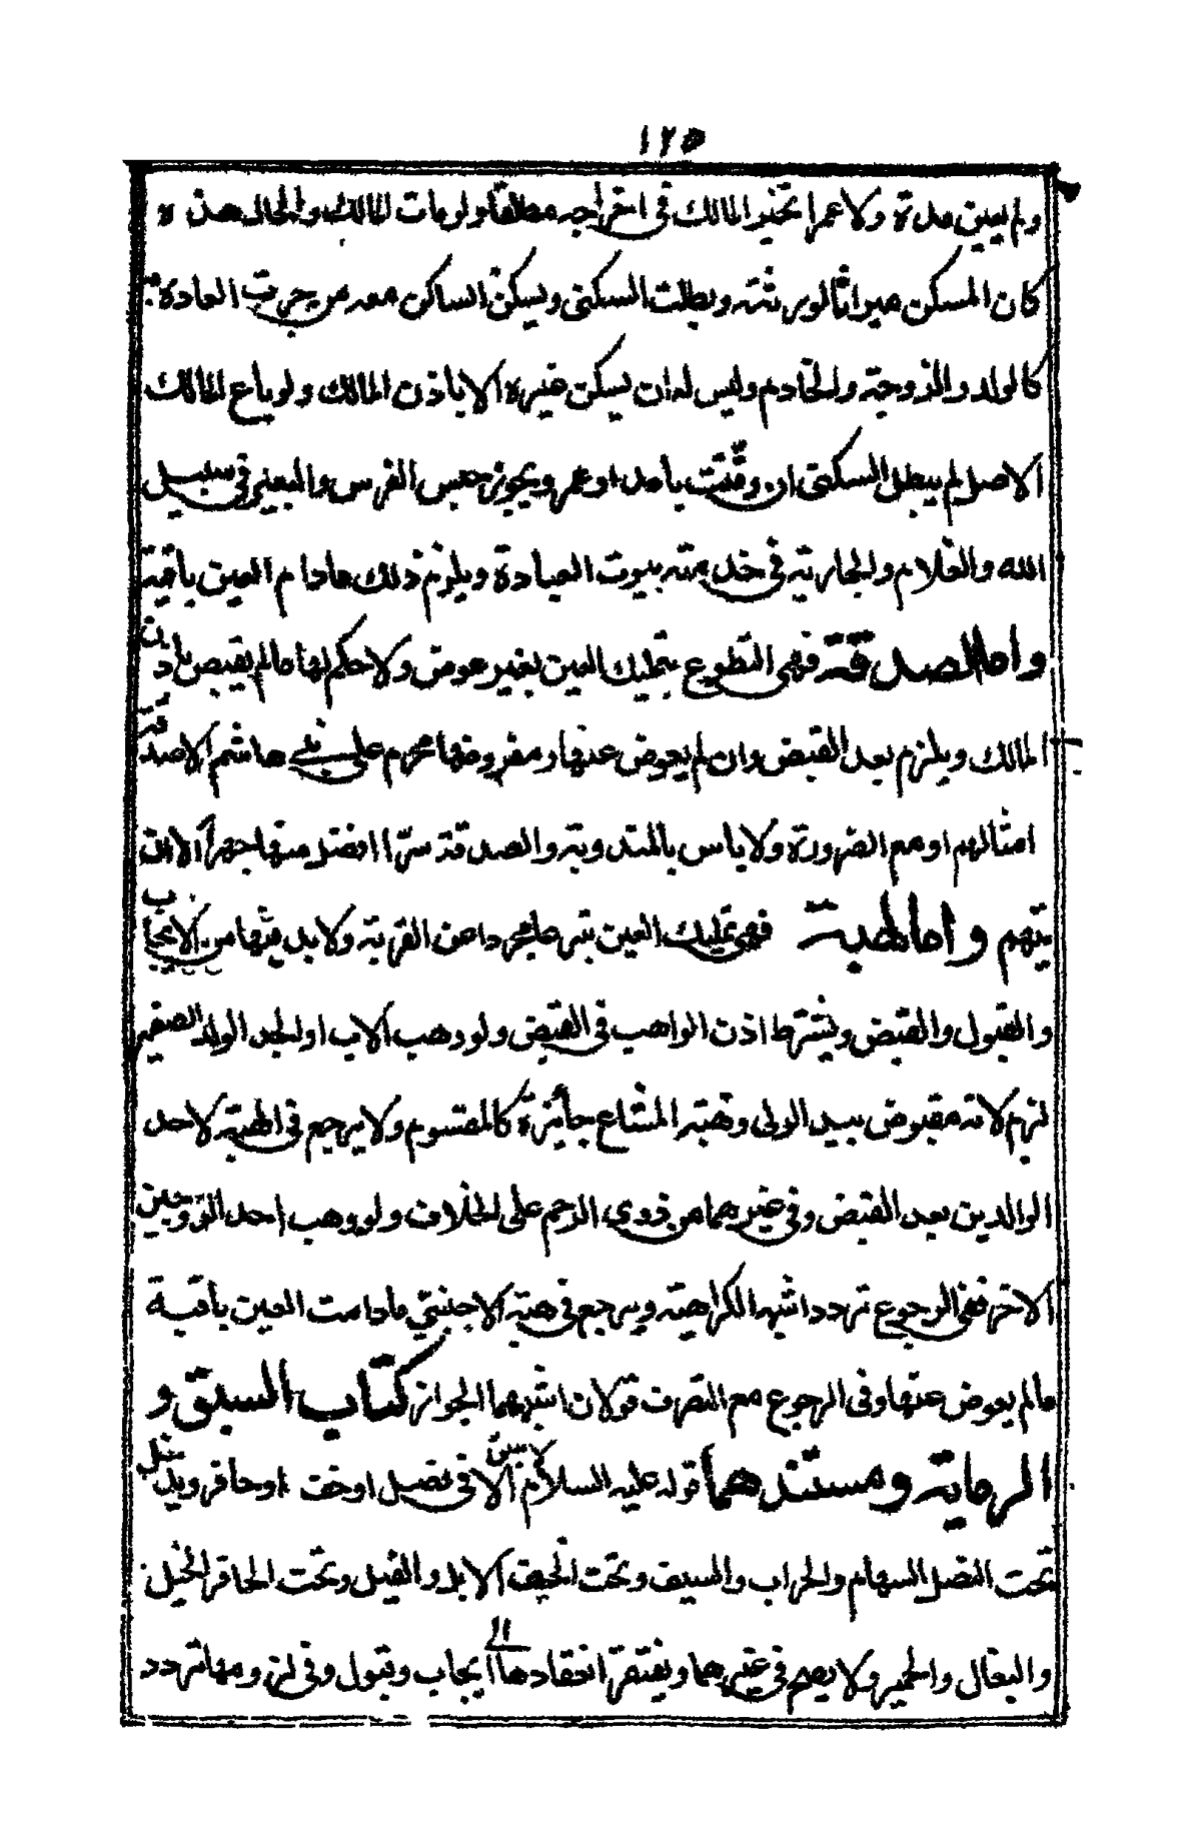 ١٢٥
ولم يعين مدة ولا عمرا تخير المالك فى اخراجه مطلقا ولو مات المالك والحال هذه
كان المسكن ميراثا لورثته وبطلت السكنى ويسكن الساكن معه من جرت العادة به
كالولد والزوجة والخادم وليس له ان يسكن غيره الا باذن المالك ولو باع المالك
الاصل لم يبطل السكنى ان وقتت بامد او عمر ويجوز حبس الفرس والبعير فى سبيل
الله والغلام والجارية فى خدمته بيوت العبادة ويلزم ذلك مادام العين باقية
واما الصدقة فهى التطوع بتمليك العين بغير عوض ولا حكم لها مالم يقبض باذن
المالك ويلزم بعد القبض وان لم يعوض عنها ومفروضها محرم على بنى هاشم الا صدقة
امثالهم او مع الضرورة ولا باس بالمندوبة والصدقة سرا افضل منها جهرا الا ان
يتهم واما الهبة فهى تمليك العين تبرعا مجردا عن القربة ولا بد فيها من الايجاب
والقبول والقبض ويشترط اذن الواهب فى القبض ولو وهب الاب او الجد الولد الصغير
لزم لانه مقبوض بيد الولى وهبة المشاع جائزة كالمقسوم ولا يرجع فى الهبة لاحد
الوالدين بعد القبض وفى غيرهما من ذوى الرحم على الخلاف ولو وهب احد الزوجين
الاخر ففى الرجوع تردد اشبهه الكراهية ويرجع فى هبة الاجنبي مادامت العين باقية
مالم يعوض عنها وفى الرجوع مع التصرف قولان اشبههما الجواز كتاب السبق و
الرماية ومستندهما قوله عليه السلام لا سبق الا فى نصل او خف او حافر ويدخل
تحت النصل السهام والحراب والسيف وتحت الخف الابل والفيل وتحت الحافر الخيل
والبغال والحمير ولا يصح فى غيرهما ويفتقر انعقادها الى ايجاب وقبول وفى لزومها تردد